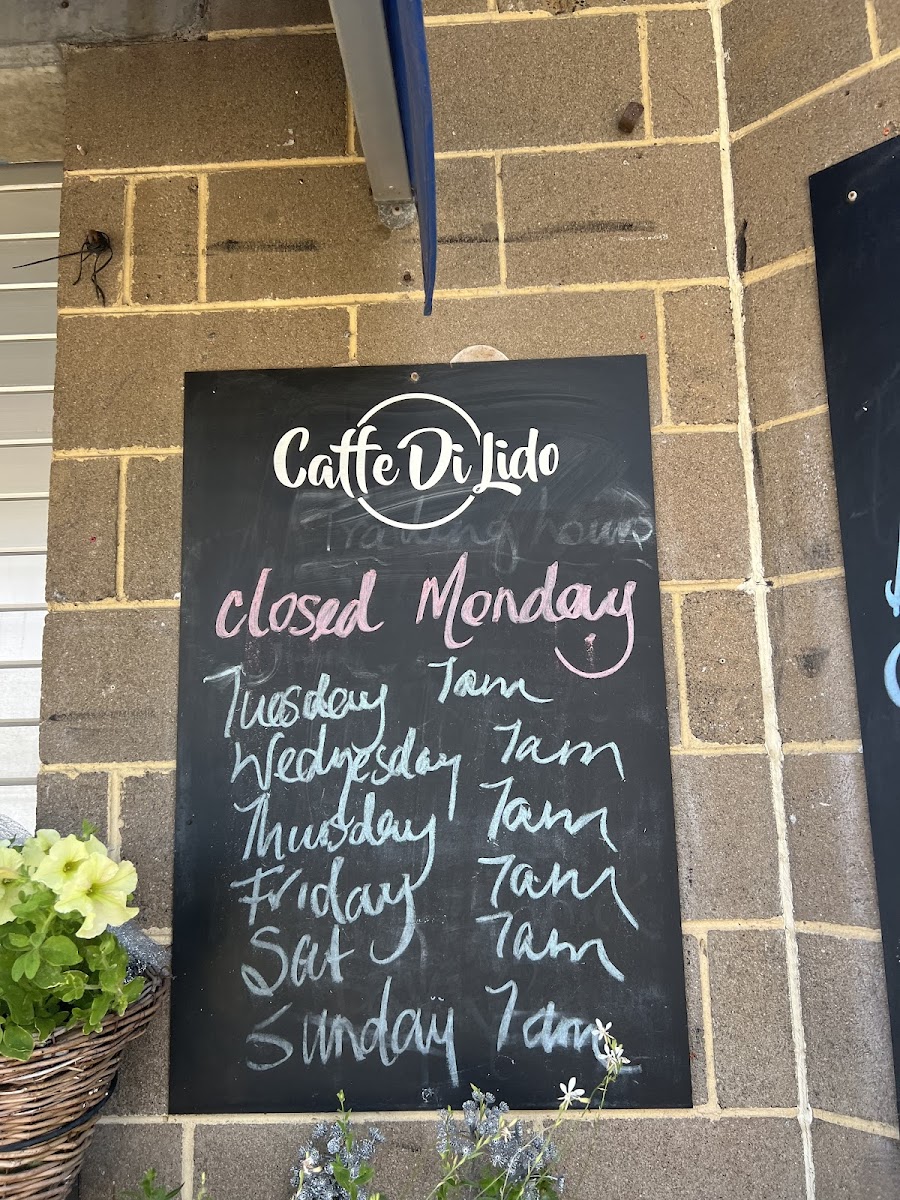 Caffe Di Lido
Trading hours
closed Monday
Tuesday 7am
Wednesday 7am
Thursday 7am
Friday 7am
Sat 7am
Sunday 7am